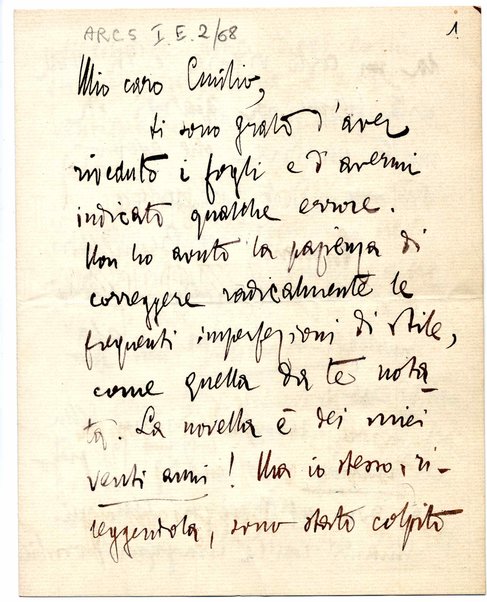 ARCS I.E.2/68
1
Mio caro Emilio,
ti sono grato d'aver
riveduto i fogli e d'avermi
indicato qualche errore.
Non ho avuto la pazienza di
correggere radicalmente le
frequenti imperfezioni di stile,
come quella da te nota-
ta. La novella è dei miei
venti anni! Ma io stesso, ri-
leggendola, sono stato colpito